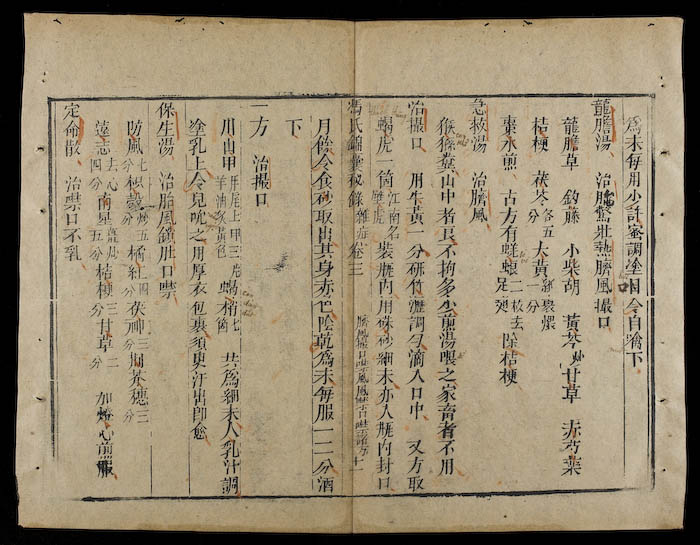 為末每用少許蜜調塗口令自嚥下
龍膽湯 治臍驚壯熱臍風撮口
龍膽草 釣藤 小柴胡 黃芩炒 甘草 赤芍藥
桔梗 茯苓各五分 大黃一分
棗水煎 古方有蜣螂二枚去足翅 除桔梗
急救湯 治臍風
猴猻糞山中者艮不拘多少煎湯喂之家畜者不用
治撮口 用牛黃一分研竹瀝調勻滴入口中 又方取
蝎虎一箇江南名壁虎裝瓶內用硃砂細末亦入瓶內封口
馮氏錦囊秘錄雜症卷三
月餘令食砂取出其身赤色陰乾為末每服一二分酒
下
一方 治撮口
用山甲用尾上甲三片羊油炙黃色 蝎梢七箇 共為細末人乳汁調
塗乳上令兒吮之用厚衣包裹須臾汗出即愈
保生湯 治胎風鎖肚口噤
防風七分 枳殼炒五分 橘紅四分 茯神三分 荊芥穗三分
遠志去心四分 南星五分 桔梗三分 甘草二分 加燈心煎服
定命散 治噤口不乳